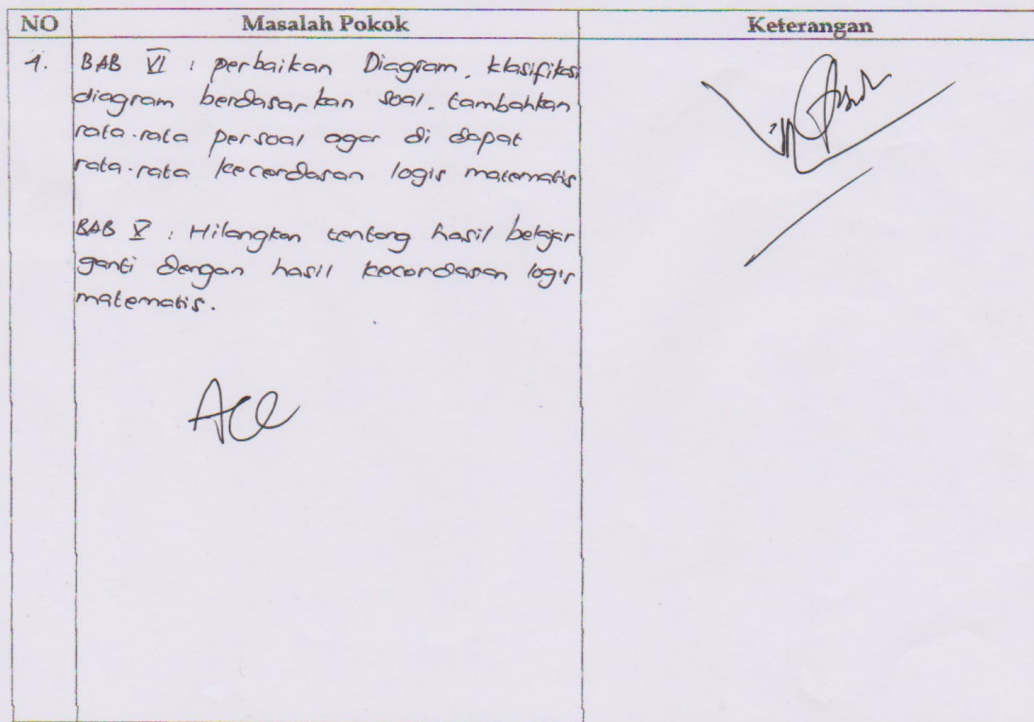 NO Masalah Pokok Keterangan
1. BAB VI : perbaikan Diagram, klasifikasi
diagram berdasarkan soal. tambahkan
rata-rata persoal agar di dapat
rata-rata kecerdasan logis matematis
BAB V : Hilangkan tentang hasil belajar
ganti dengan hasil kecerdasan logis
matematis.
ACC